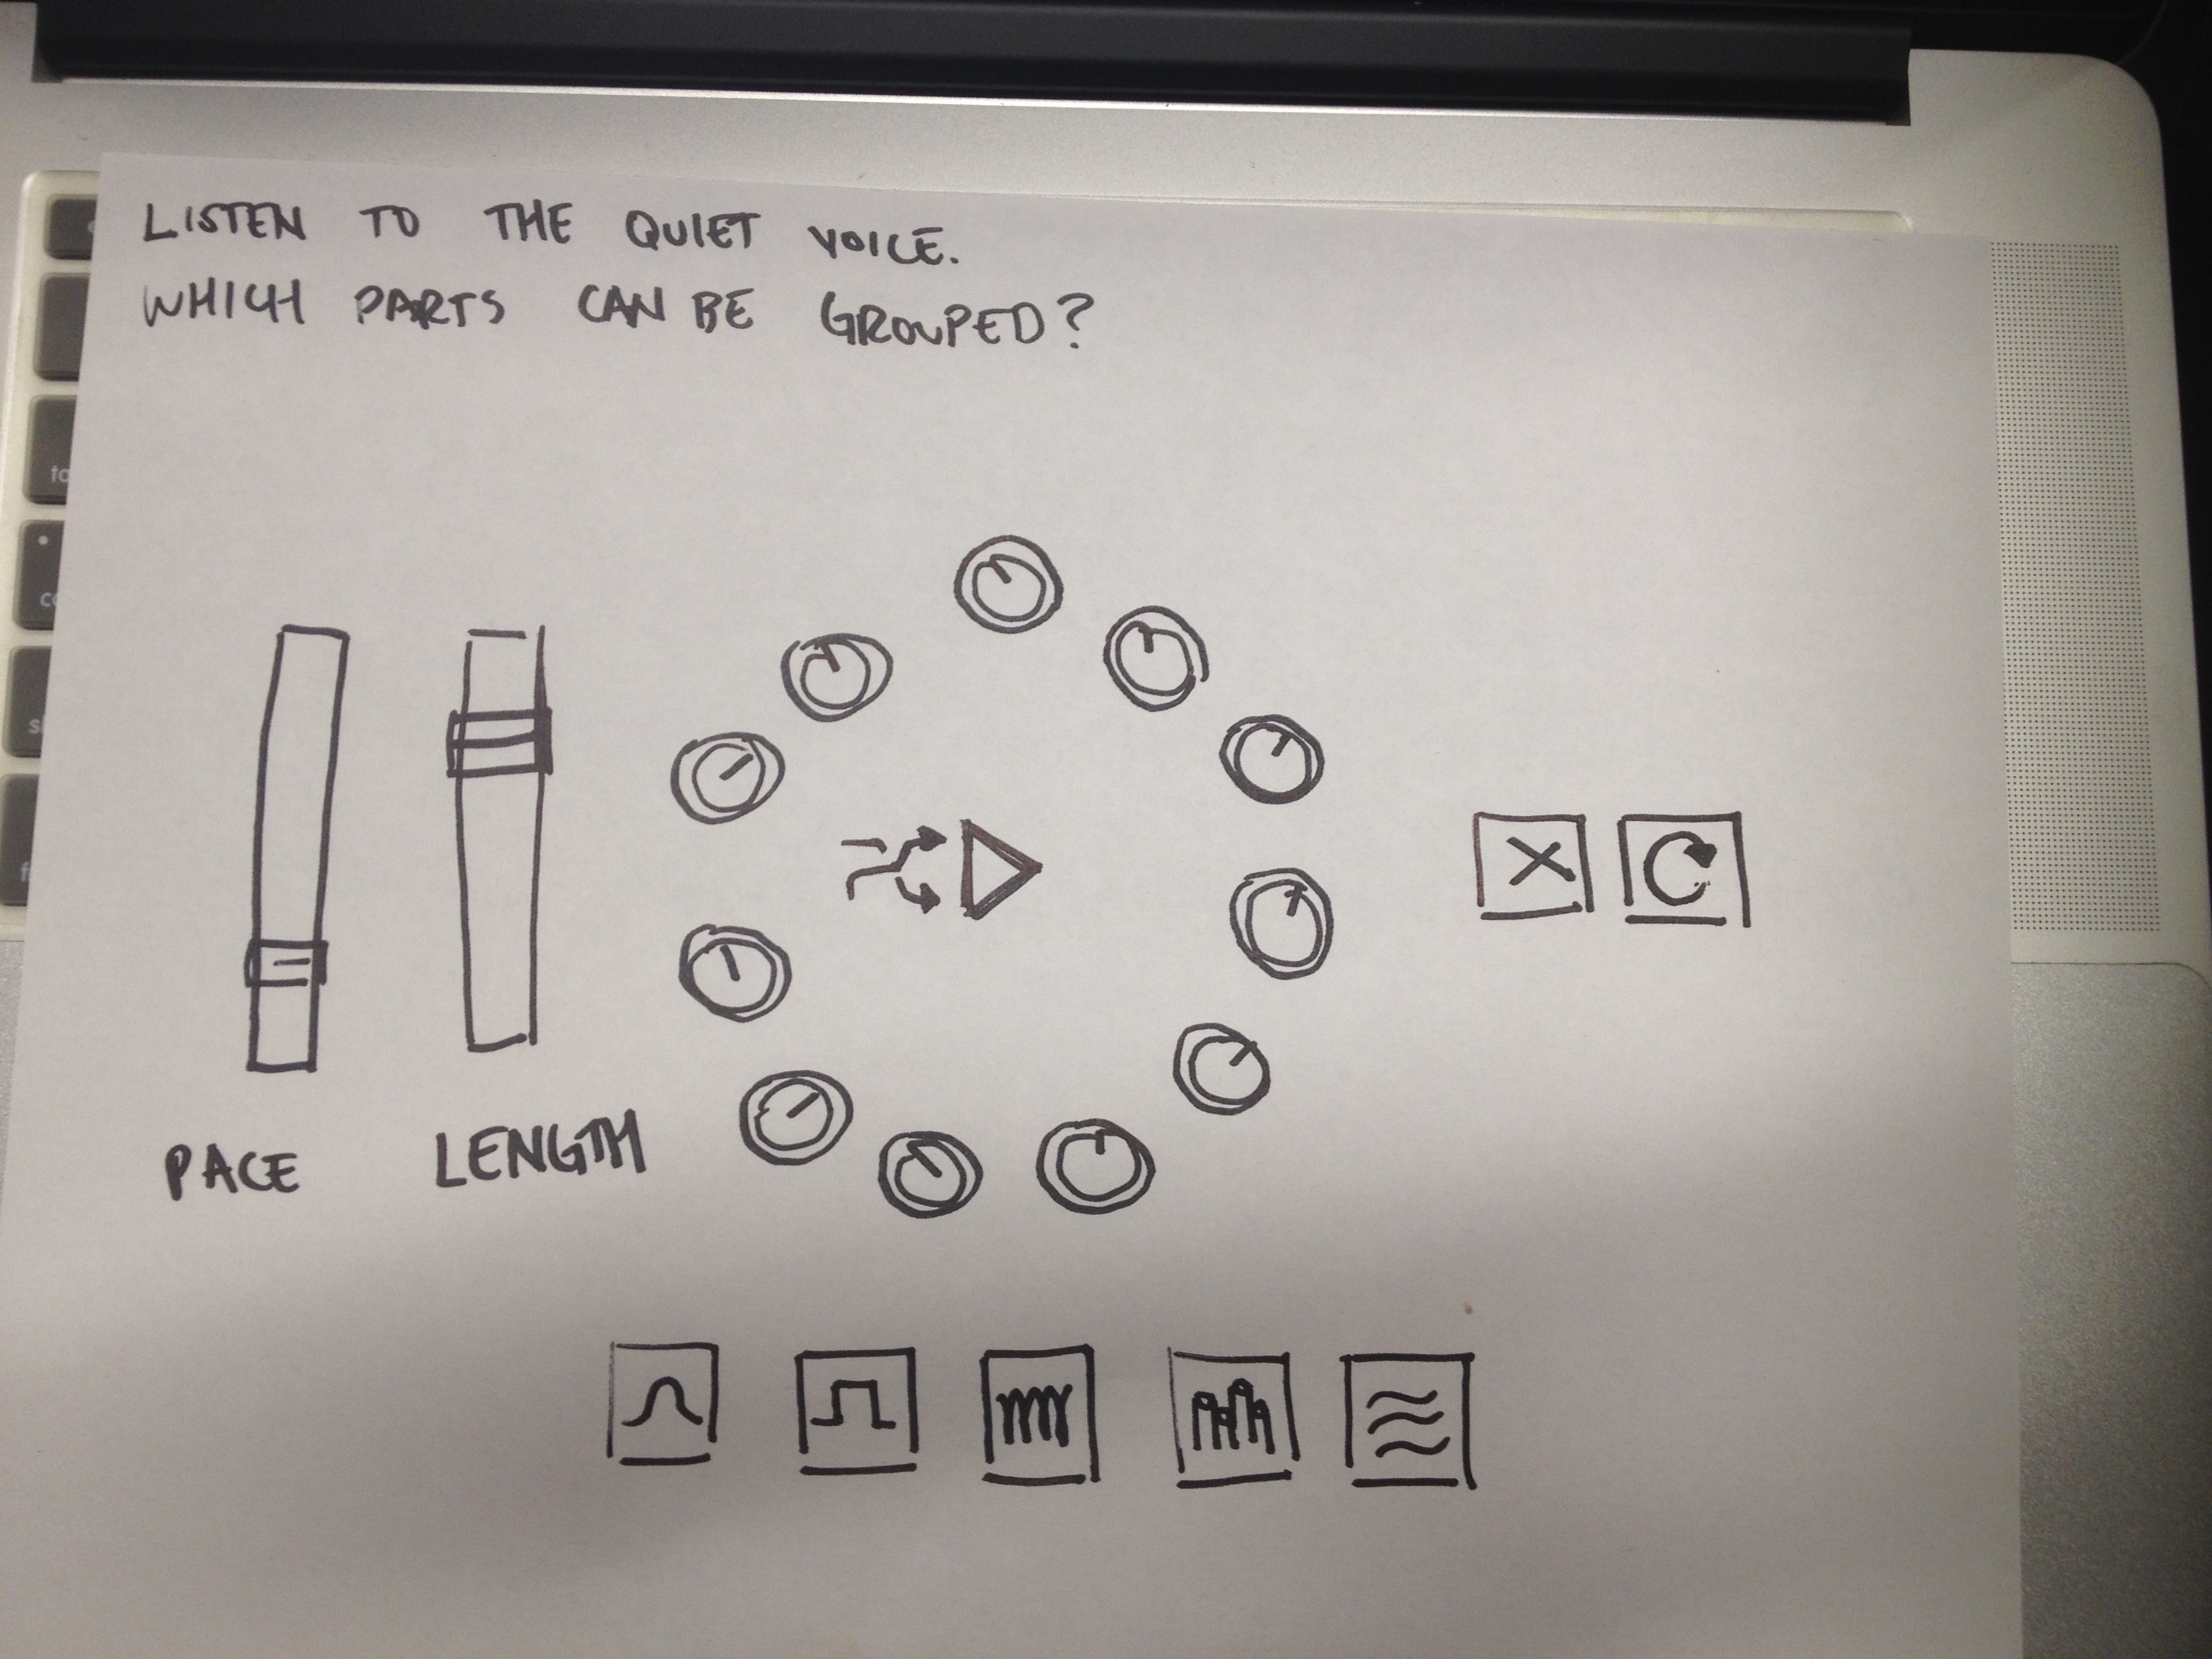 LISTEN TO THE QUIET VOICE.
WHICH PARTS CAN BE GROUPED?
PACE LENGTH